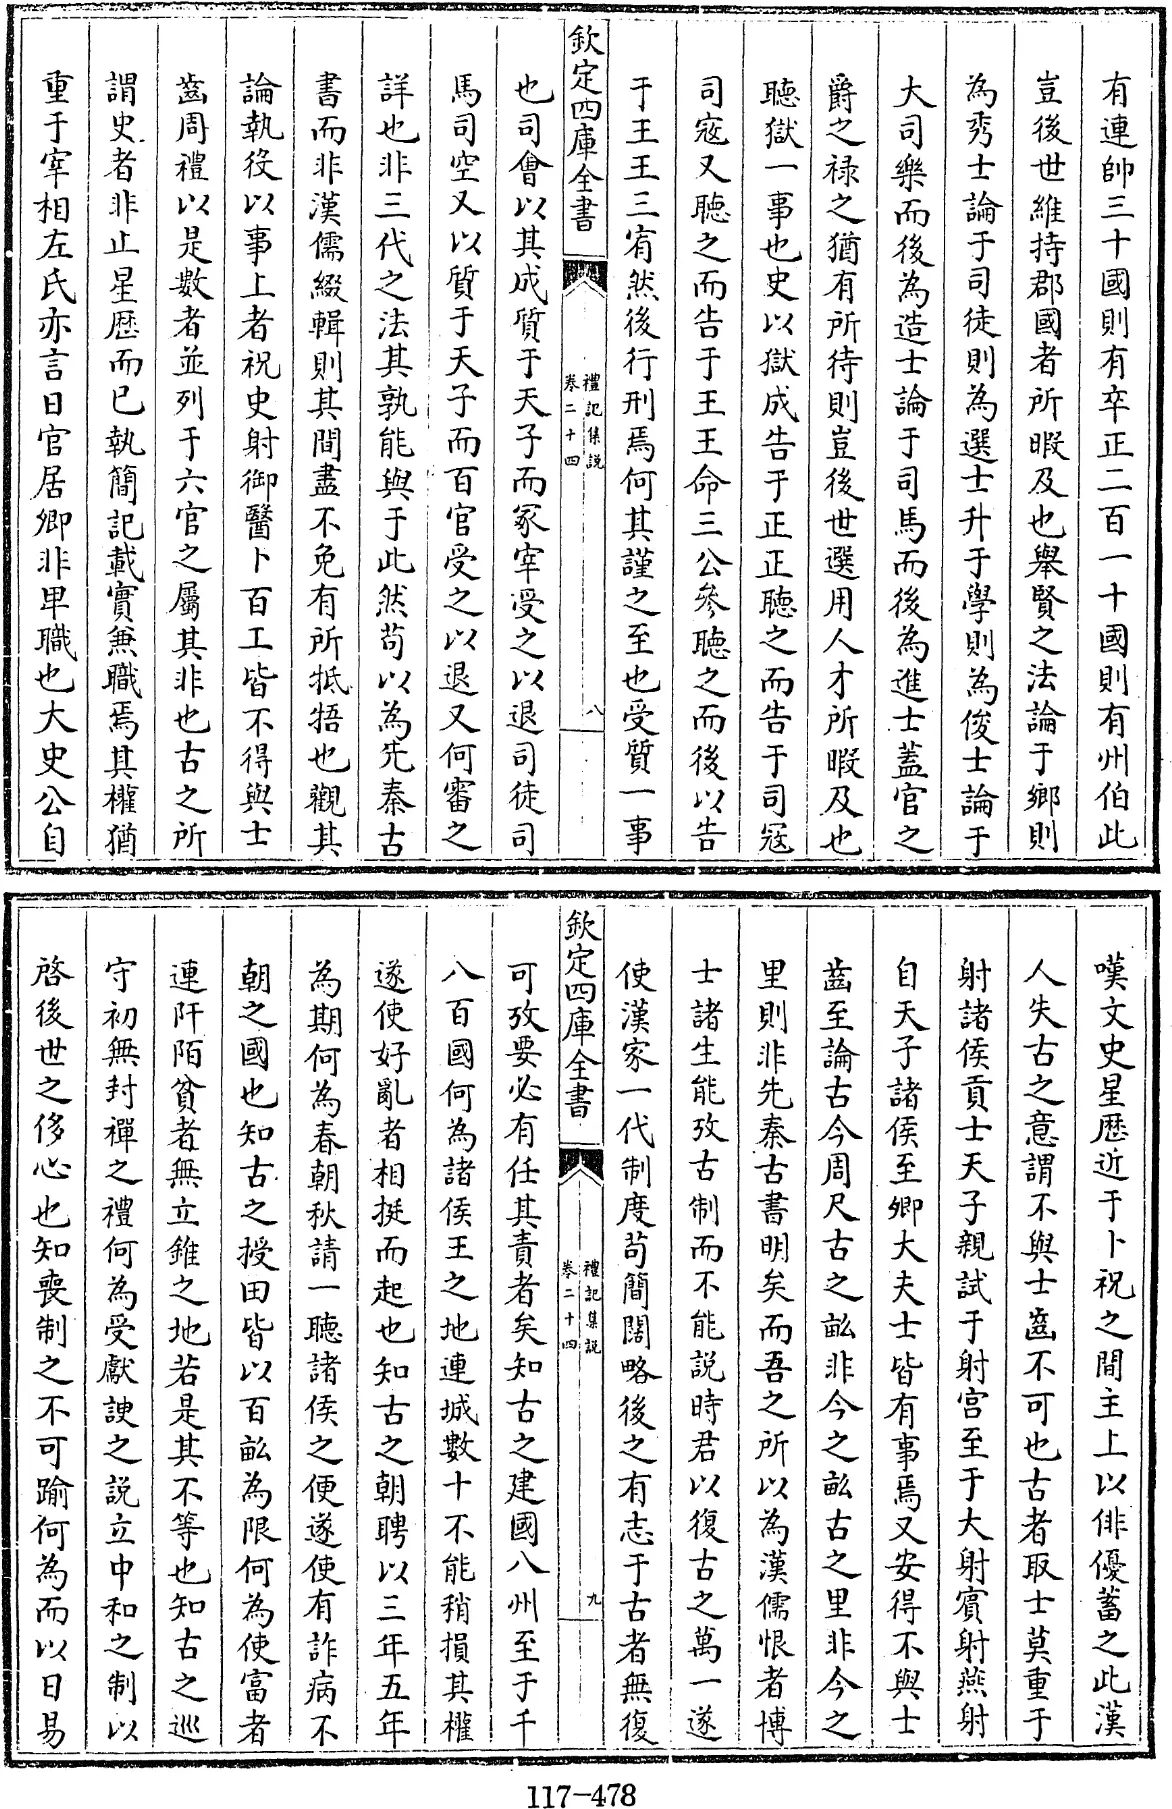 有連帥三十國則有卒正二百一十國則有州伯此
豈後世維持郡國者所暇及也舉賢之法論于鄉則
為秀士論于司徒則為選士升于學則為俊士論于
大司樂而後為造士論于司馬而後為進士蓋官之
爵之祿之猶有所待則豈後世選用人才所暇及也
聽獄一事也史以獄成告于正正聽之而告于司寇
司寇又聽之而告于王王命三公參聽之而後以告
于王王三宥然後行刑焉何其謹之至也受質一事
欽定四庫全書
禮記集説
卷二十四
八
也司會以其成質于天子而冢宰受之以退司徒司
馬司空又以質于天子而百官受之以退又何審之
詳也非三代之法其孰能與于此然苟以為先秦古
書而非漢儒綴輯則其間盡不免有所牴牾也觀其
論執役以事上者祝史射御醫卜百工皆不得與士
齒周禮以是數者並列于六官之屬其非也古之所
謂史者非止星歷而已執簡記載實兼職焉其權猶
重于宰相左氏亦言日官居卿非卑職也大史公自
嘆文史星歷近于卜祝之間主上以俳優蓄之此漢
人失古之意謂不與士齒不可也古者取士莫重于
射諸侯貢士天子親試于射宮至于大射賓射燕射
自天子諸侯至卿大夫士皆有事焉又安得不與士
齒至論古今周尺古之畝非今之畝古之里非今之
里則非先秦古書明矣而吾之所以為漢儒恨者博
士諸生能攷古制而不能説時君以復古之萬一遂
使漢家一代制度苟簡闊略後之有志于古者無復
欽定四庫全書
禮記集説
卷二十四
九
可攷要必有任其責者矣知古之建國八州至于千
八百國何為諸侯王之地連城數十不能稍損其權
遂使好亂者相挻而起也知古之朝聘以三年五年
為期何為春朝秋請一聽諸侯之便遂使有詐病不
朝之國也知古之授田皆以百畝為限何為使富者
連阡陌貧者無立錐之地若是其不等也知古之巡
守初無封禪之禮何為受獻諛之説立中和之制以
啓後世之侈心也知喪制之不可踰何為而以日易
117-478